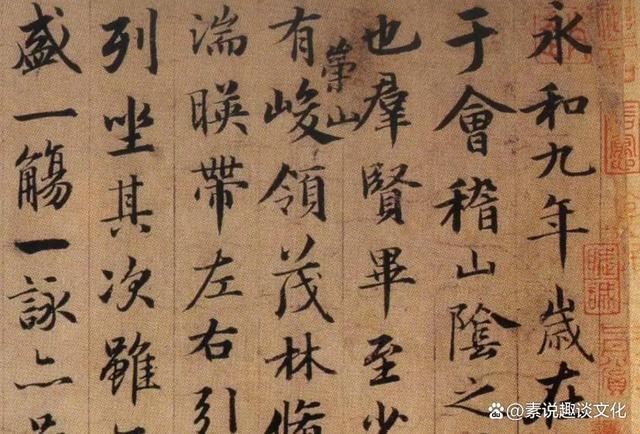 永和九年歲在
于會稽山陰之
也羣賢畢至少
有峻領茂林脩
崇山
湍暎帶左右引
列坐其次雖
盛一觴一詠亦
@素说趣谈文化